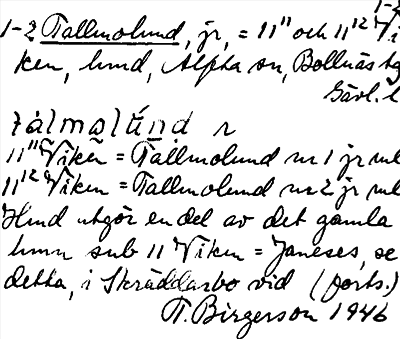 1-2
1-2 Tallmolund, jr, = 11¹¹ och 11¹² Vi
ken, hmd, Alpha sn, Bollnäs tg
Gävl. l
tálmolúnd r
11¹¹ Viken = Tallmolund nr 1 jr ml
11¹² Viken = Tallmolund nr 2 jr ml
Hmd utgör en del av det gamla
hmn sub 11 Viken = Janeses, se
detta, i Skräddarbo vid (forts.)
T. Birgerson 1946